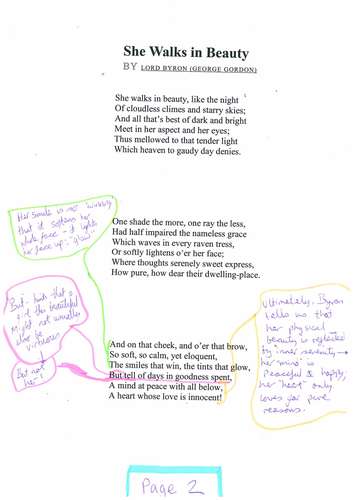 She Walks in Beauty
BY LORD BYRON (GEORGE GORDON)
She walks in beauty, like the night
Of cloudless climes and starry skies;
And all that's best of dark and bright
Meet in her aspect and her eyes;
Thus mellowed to that tender light
Which heaven to gaudy day denies.
Her smile is so 'winning'
that it softens her
whole face - it lights
her face up - "glow"
One shade the more, one ray the less,
Had half impaired the nameless grace
Which waves in every raven tress,
Or softly lightens o'er her face;
Where thoughts serenely sweet express,
How pure, how dear their dwelling-place.
"But" - hints that a
girl this beautiful
might not usually
also be
virtuous
But not
her
And on that cheek, and o'er that brow,
So soft, so calm, yet eloquent,
The smiles that win, the tints that glow,
But tell of days in goodness spent,
A mind at peace with all below,
A heart whose love is innocent!
Ultimately, Byron
tells us that
her physical
beauty is reflected
by inner serenity →
her 'mind' is
peaceful & happy,
her "heart" only
loves for pure
reasons.
Page 2